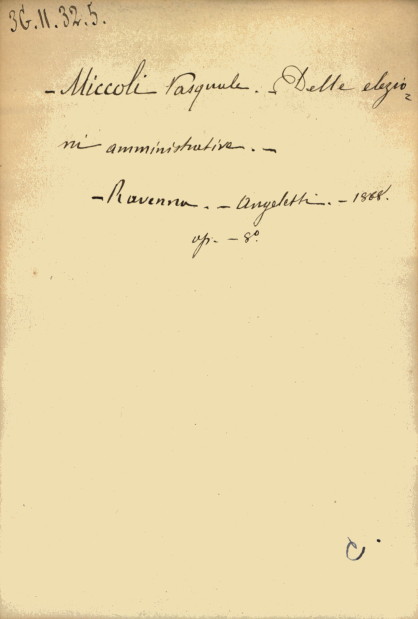 36.11.32.5.
- Miccoli Pasquale. - Delle elezio=
ni amministrative. -
- Ravenna. - Angeletti. - 1868.
op. - 8°.